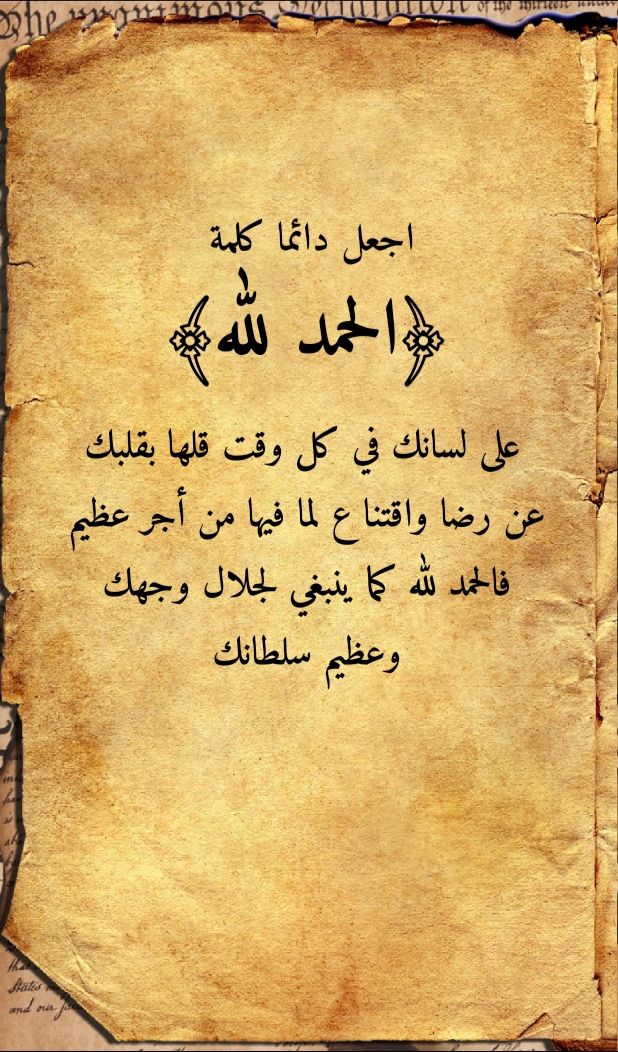 The unanimous Declaration of the thirteen united
اجعل دائما كلمة
﴿الحمد لله﴾
على لسانك في كل وقت قلها بقلبك
عن رضا واقتناع لما فيها من أجر عظيم
فالحمد لله كما ينبغي لجلال وجهك
وعظيم سلطانك
States
and our